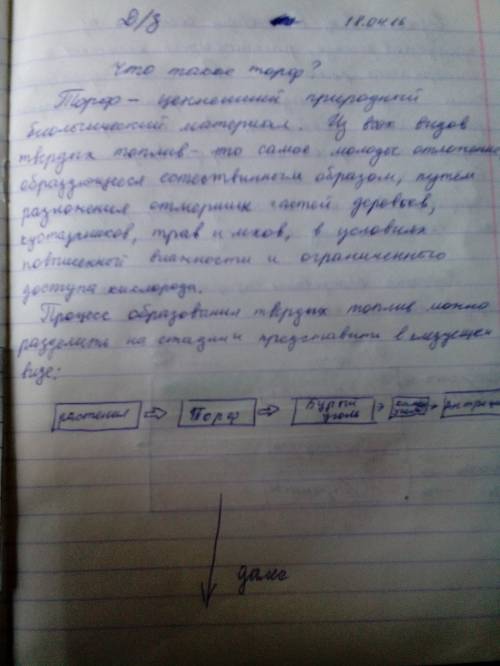 Д/з 18.04.16
Что такое торф?
Торф – ценнейший природный
биологический материал. Из всех видов
твердых топлив – то самое молодое отложение,
образующееся естественным образом, путем
разложения отмерших частей деревьев,
кустарников, трав и мхов, в условиях
повышенной влажности и ограниченного
доступа кислорода.
Процесс образования твердых топлив можно
разделить на стадии и представить в следующем
виде:
растения ⇨ Торф ⇨ Бурый уголь → → антрацит
далее